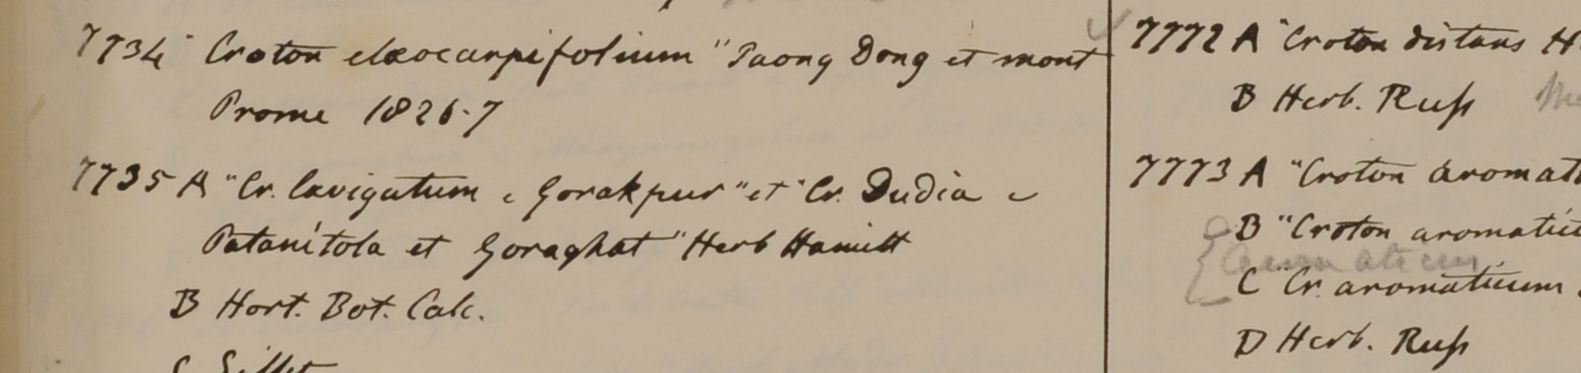 7734 "Croton elæocarpifolium" Taong Dong et mont
Prome 1826-7
7735 A "Cr. lævigatum e Gorakpur" et "Cr. Dudia e
Patanitola et Goraghat" Herb Hamilt
B Hort. Bot. Calc.
C Sillet
7772 A "Croton distans H
B Herb. Russ
7773 A "Croton aromati
B "Croton aromatic
C "Cr. aromaticum
D Herb. Russ